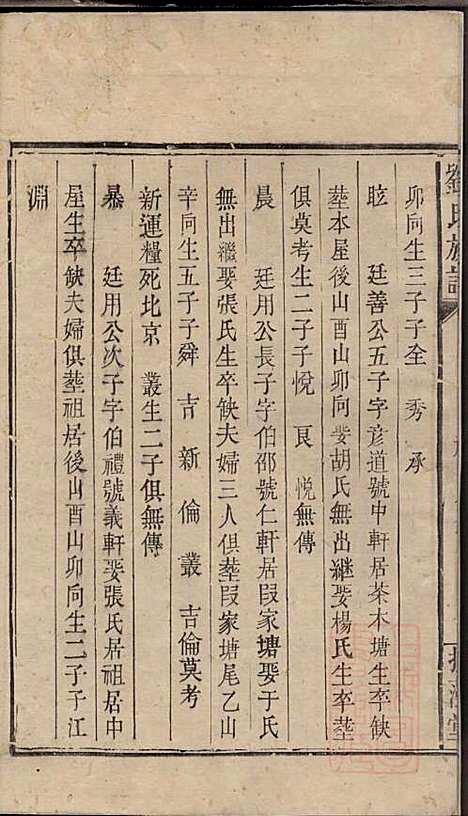 劉氏族譜
卯向生三子子全 秀 承
昡 廷善公五子字彦道號中軒居茶木塘生卒缺
塟本屋後山酉山卯向娶胡氏無出継娶楊氏生卒塟
俱莫考生二子子悅 艮 悅無傳
晨 廷用公長子字伯邵號仁軒居叚家塘娶于氏
無出繼娶張氏生卒缺夫婦三人俱塟叚家塘尾乙山
辛向生五子子舜 吉 新 倫 叢 吉倫莫考
新運糧死北京 叢生二子俱無傳
㬥 廷用公次子字伯禮號義軒娶張氏居祖居中
屋生卒缺夫婦俱塟祖居後山酉山卯向生二子子江
淵